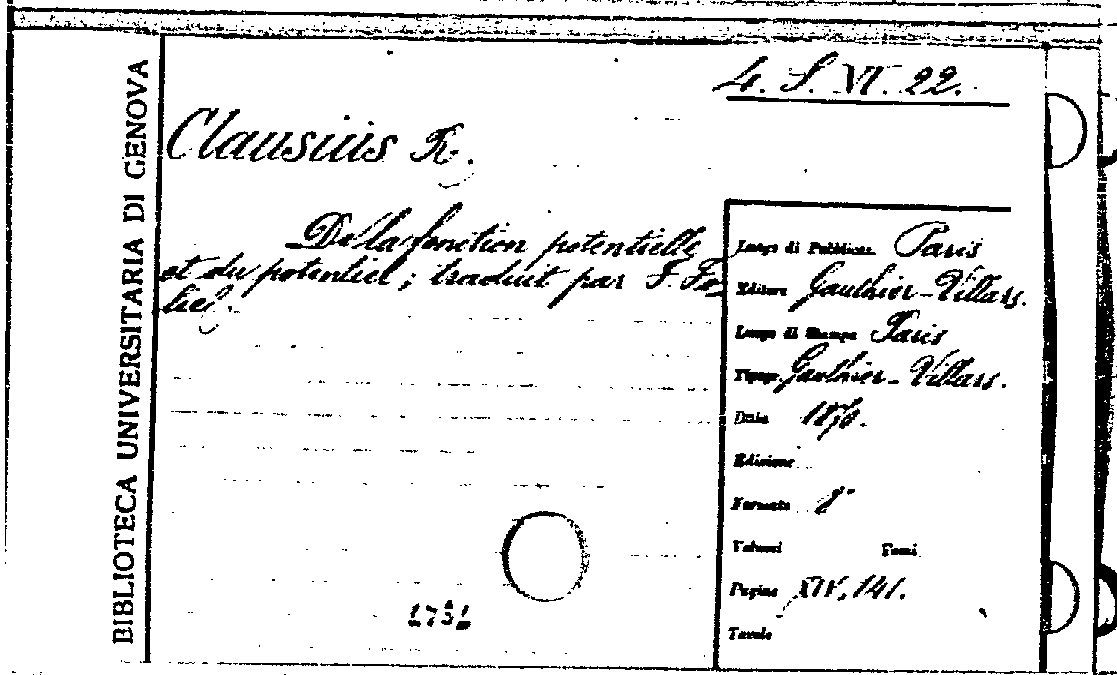 BIBLIOTECA UNIVERSITARIA DI GENOVA
4. S. VI. 22.
Clausius R.
De la fonction potentielle
et du potentiel; traduit par F. Fo-
lie.
Luogo di Pubblicaz. Paris
Editore Gauthier-Villars.
Luogo di Stampa Paris
Tipogr. Gauthier-Villars.
Data 1870.
Edizione
Formato 8°
Volumi Tomi
Pagine XIV, 141.
Tavole